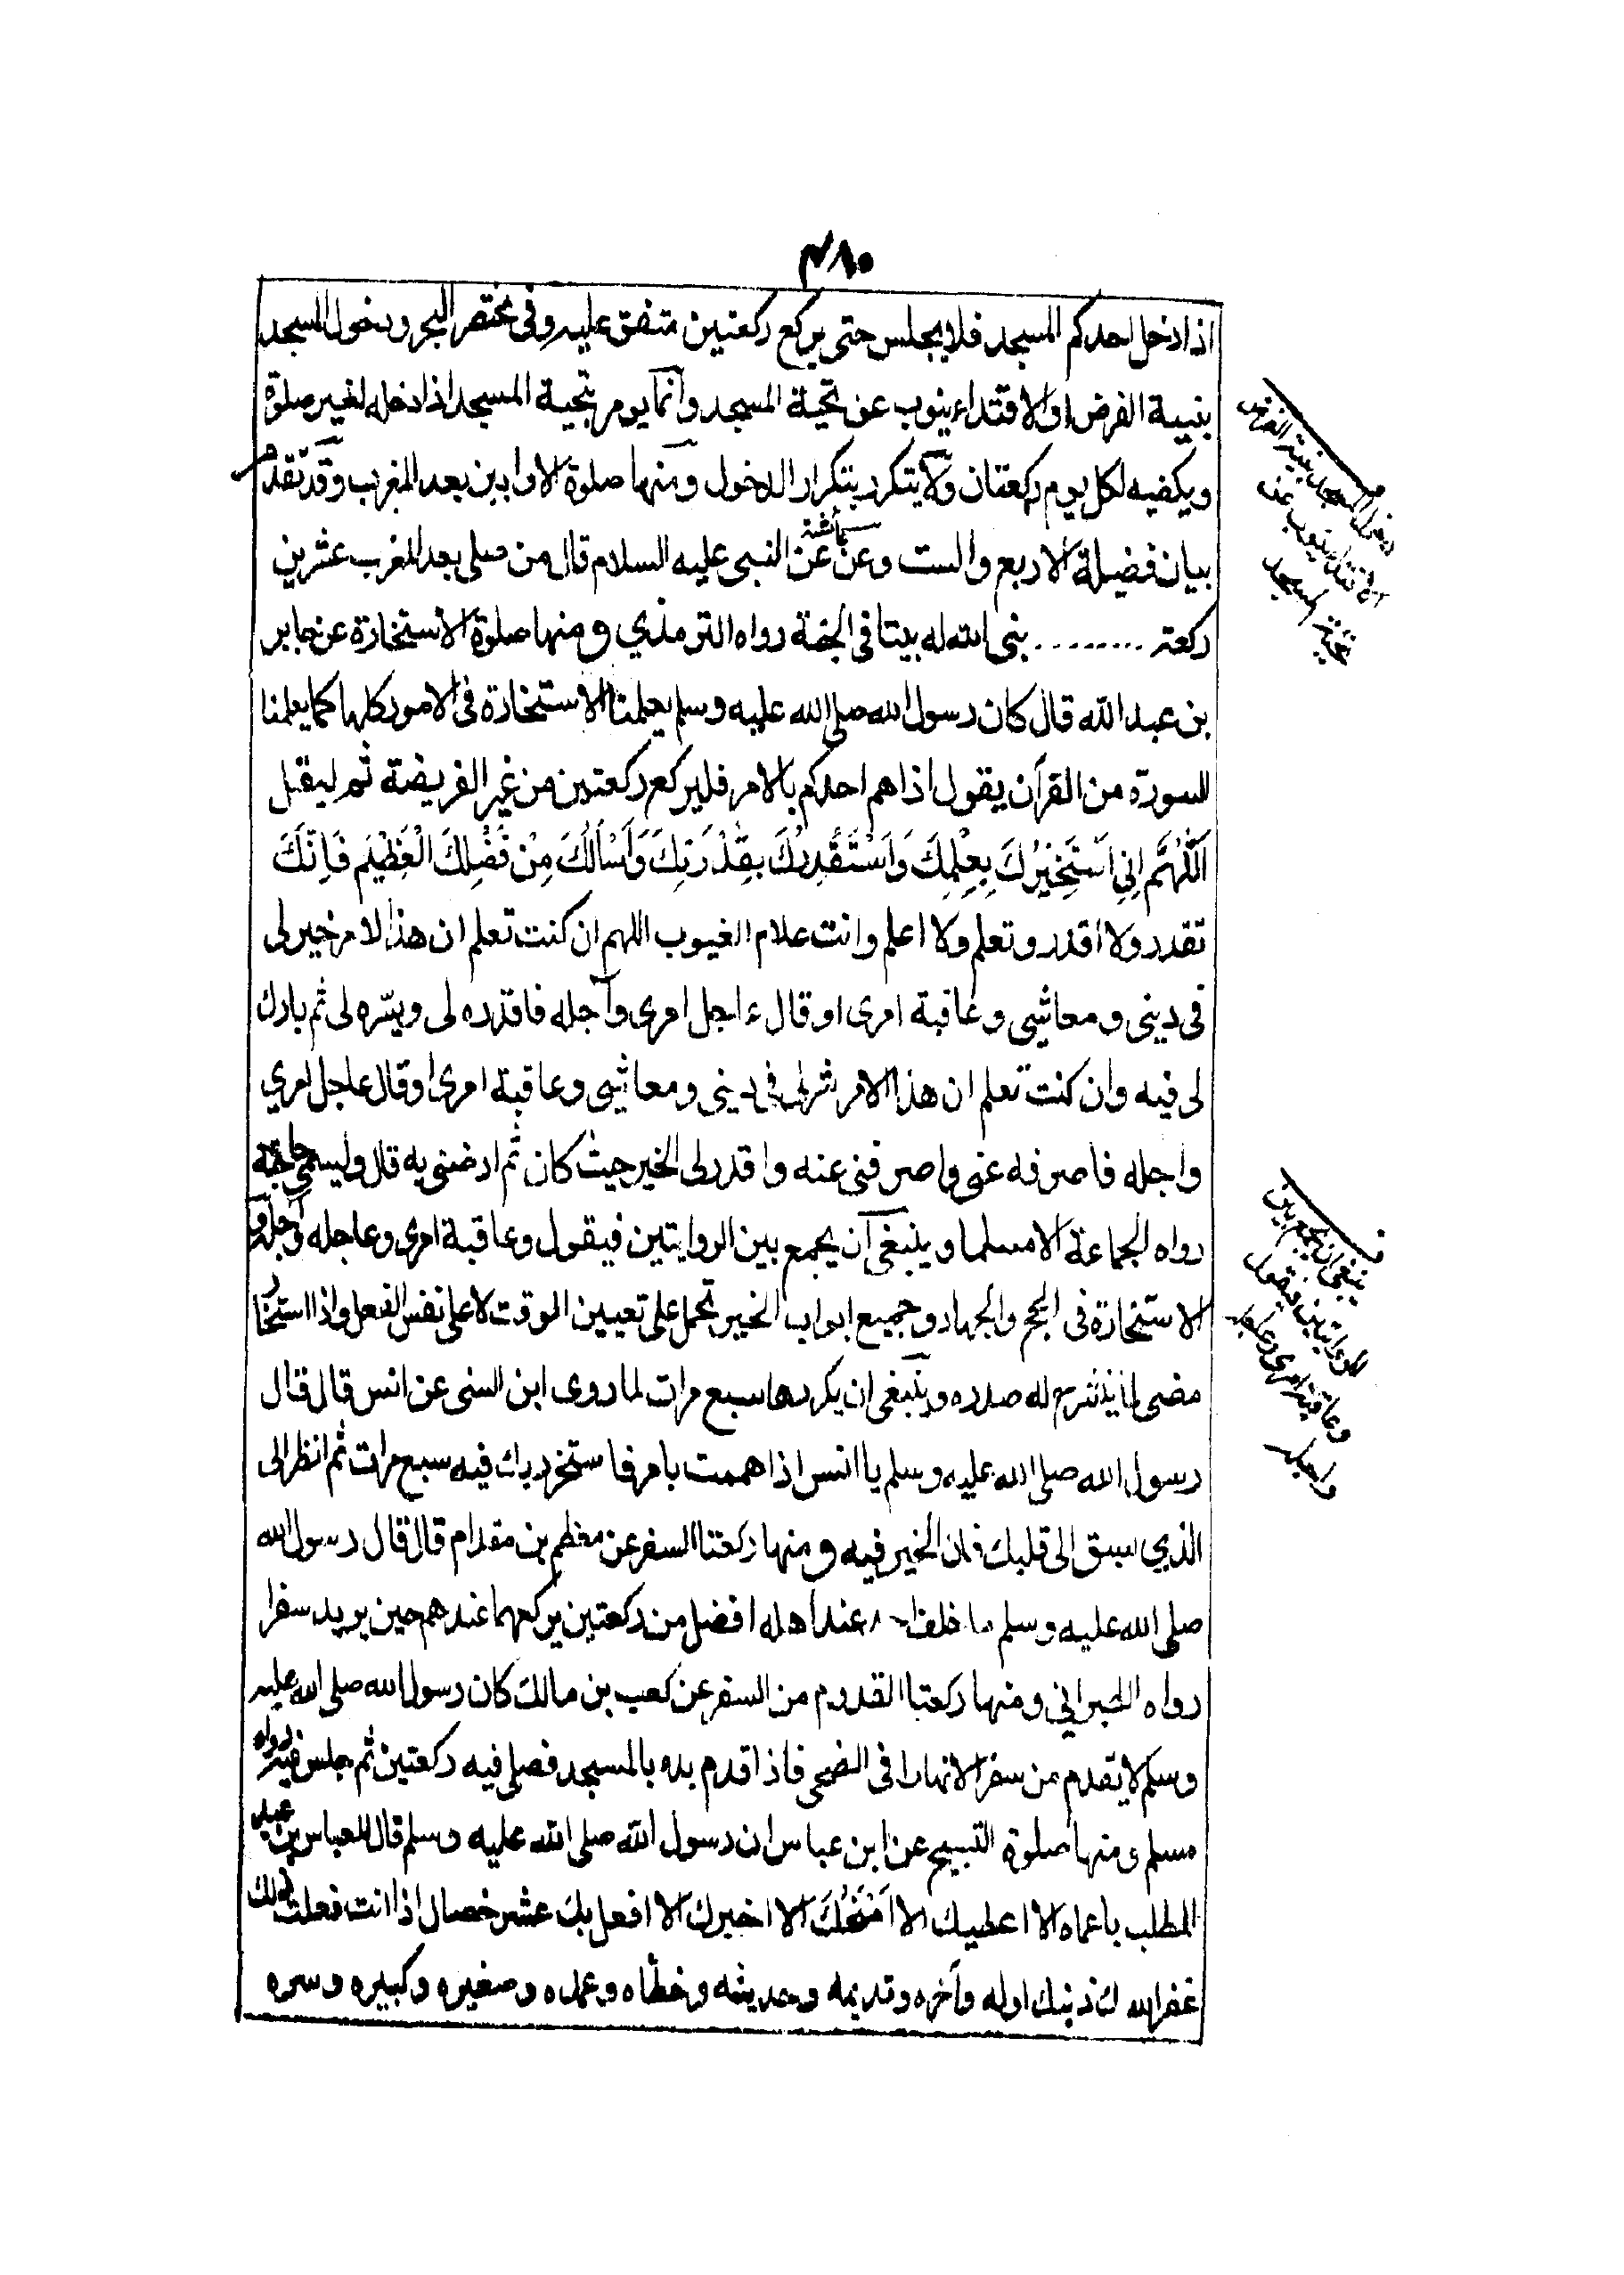 ٣٨٠
اذا دخل احدكم المسجد فلا يجلس حتى يركع ركعتين متفق عليه وفى مختصر البحر ودخول المسجد
بنية الفرض او الاقتداء ينوب عن تحية المسجد وانما يومر بتحية المسجد اذا دخله لغير صلوة
ويكفيه لكل يوم ركعتان ولا يتكرر بتكرار الدخول ومنها صلوة الاوابين بعد المغرب وقد تقدم
بيان فضيلة الاربع والست وعن عائشة عن النبى عليه السلام قال من صلى بعد المغرب عشرين
ركعة ......... بنى الله له بيتا فى الجنة رواه الترمذي ومنها صلوة الاستخارة عن جابر
بن عبد الله قال كان رسول الله صلى الله عليه وسلم يعلمنا الاستخارة فى الامور كلها كما يعلمنا
السورة من القرآن يقول اذا هم احدكم بالامر فليركع ركعتين من غير الفريضة ثم ليقل
اَللّٰهُمَّ اِنِّي اَسْتَخِيْرُكَ بِعِلْمِكَ وَاَسْتَقْدِرُكَ بِقُدْرَتِكَ وَاَسْأَلُكَ مِنْ فَضْلِكَ الْعَظِيْمِ فَاِنَّكَ
تقدر ولا اقدر وتعلم ولا اعلم وانت علام الغيوب اللهم ان كنت تعلم ان هذا الامر خير لى
فى دينى ومعاشى وعاقبة امرى او قال عاجل امرى وآجله فاقدره لى ويسّره لى ثم بارك
لى فيه وان كنت تعلم ان هذا الامر شر لى فى دينى ومعاشى وعاقبة امرى او قال عاجل امري
واجله فاصرفه عنى واصرفنى عنه واقدر لى الخير حيث كان ثم ارضنى به قال وليسمى حاجته
رواه الجماعة الا مسلما وينبغى ان يجمع بين الروايتين فيقول وعاقبة امرى وعاجله وآجله و
الاستخارة فى الحج والجهاد وجميع ابواب الخير تحمل على تعيين الوقت لا على نفس الفعل واذا استخار
مضى لما ينشرح له صدره وينبغى ان يكررها سبع مرات لما روى ابن السنى عن انس قال قال
رسول الله صلى الله عليه وسلم يا انس اذا هممت بامر فاستخر ربك فيه سبع مرات ثم انظر الى
الذي سبق الى قلبك فان الخير فيه ومنها ركعتا السفر عن مطعم بن مقدام قال قال رسول الله
صلى الله عليه وسلم ما خلف عند اهله افضل من ركعتين يركعهما عندهم حين يريد سفرا
رواه الطبراني ومنها ركعتا القدوم من السفر عن كعب بن مالك كان رسول الله صلى الله عليه
وسلم لا يقدم من سفر الا نهارا فى الضحى فاذا قدم بدء بالمسجد فصلى فيه ركعتين ثم جلس فيه رواه
مسلم ومنها صلوة التسبيح عن ابن عباس ان رسول الله صلى الله عليه وسلم قال للعباس بن عبد
المطلب ياعماه الا اعطيك الا اَمْنَحُكَ الا اخبرك الا افعل بك عشر خصال اذا انت فعلت ذلك
غفر الله لك ذنبك اوله وآخره وقديمه وحديثه وخطأه وعمده وصغيره وكبيره وسره
دخول المسجد بنية الفرض
او الاقتداء ينوب عن
تحية المسجد
ينبغى ان يجمع بين
الروايتين فيقول
وعاقبة امرى وعاجله
واجله